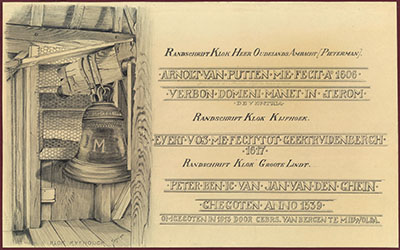 RANDSCHRIFT KLOK HEER OUDELANDS AMBACHT (PIETERMAN).
ARNOLT VAN PUTTEN ME FECIT A° 1606.
VERBON DOMENI MANET IN ETEROM
RANDSCHRIFT KLOK KIJFHOEK.
EVERT VOS ME FECIT TOT GEERTRUIDENBERGH
1617.
RANDSCHRIFT KLOK GROOTE LINDT.
PETER BEN IC VAN JAN VAN DEN GHEIN
GHEGOTEN ANNO 1539
OMGEGOTEN IN 1913 DOOR GEBRS. VAN BERGEN TE MIDWOLDA.
M
KLOK KYFHOUCK